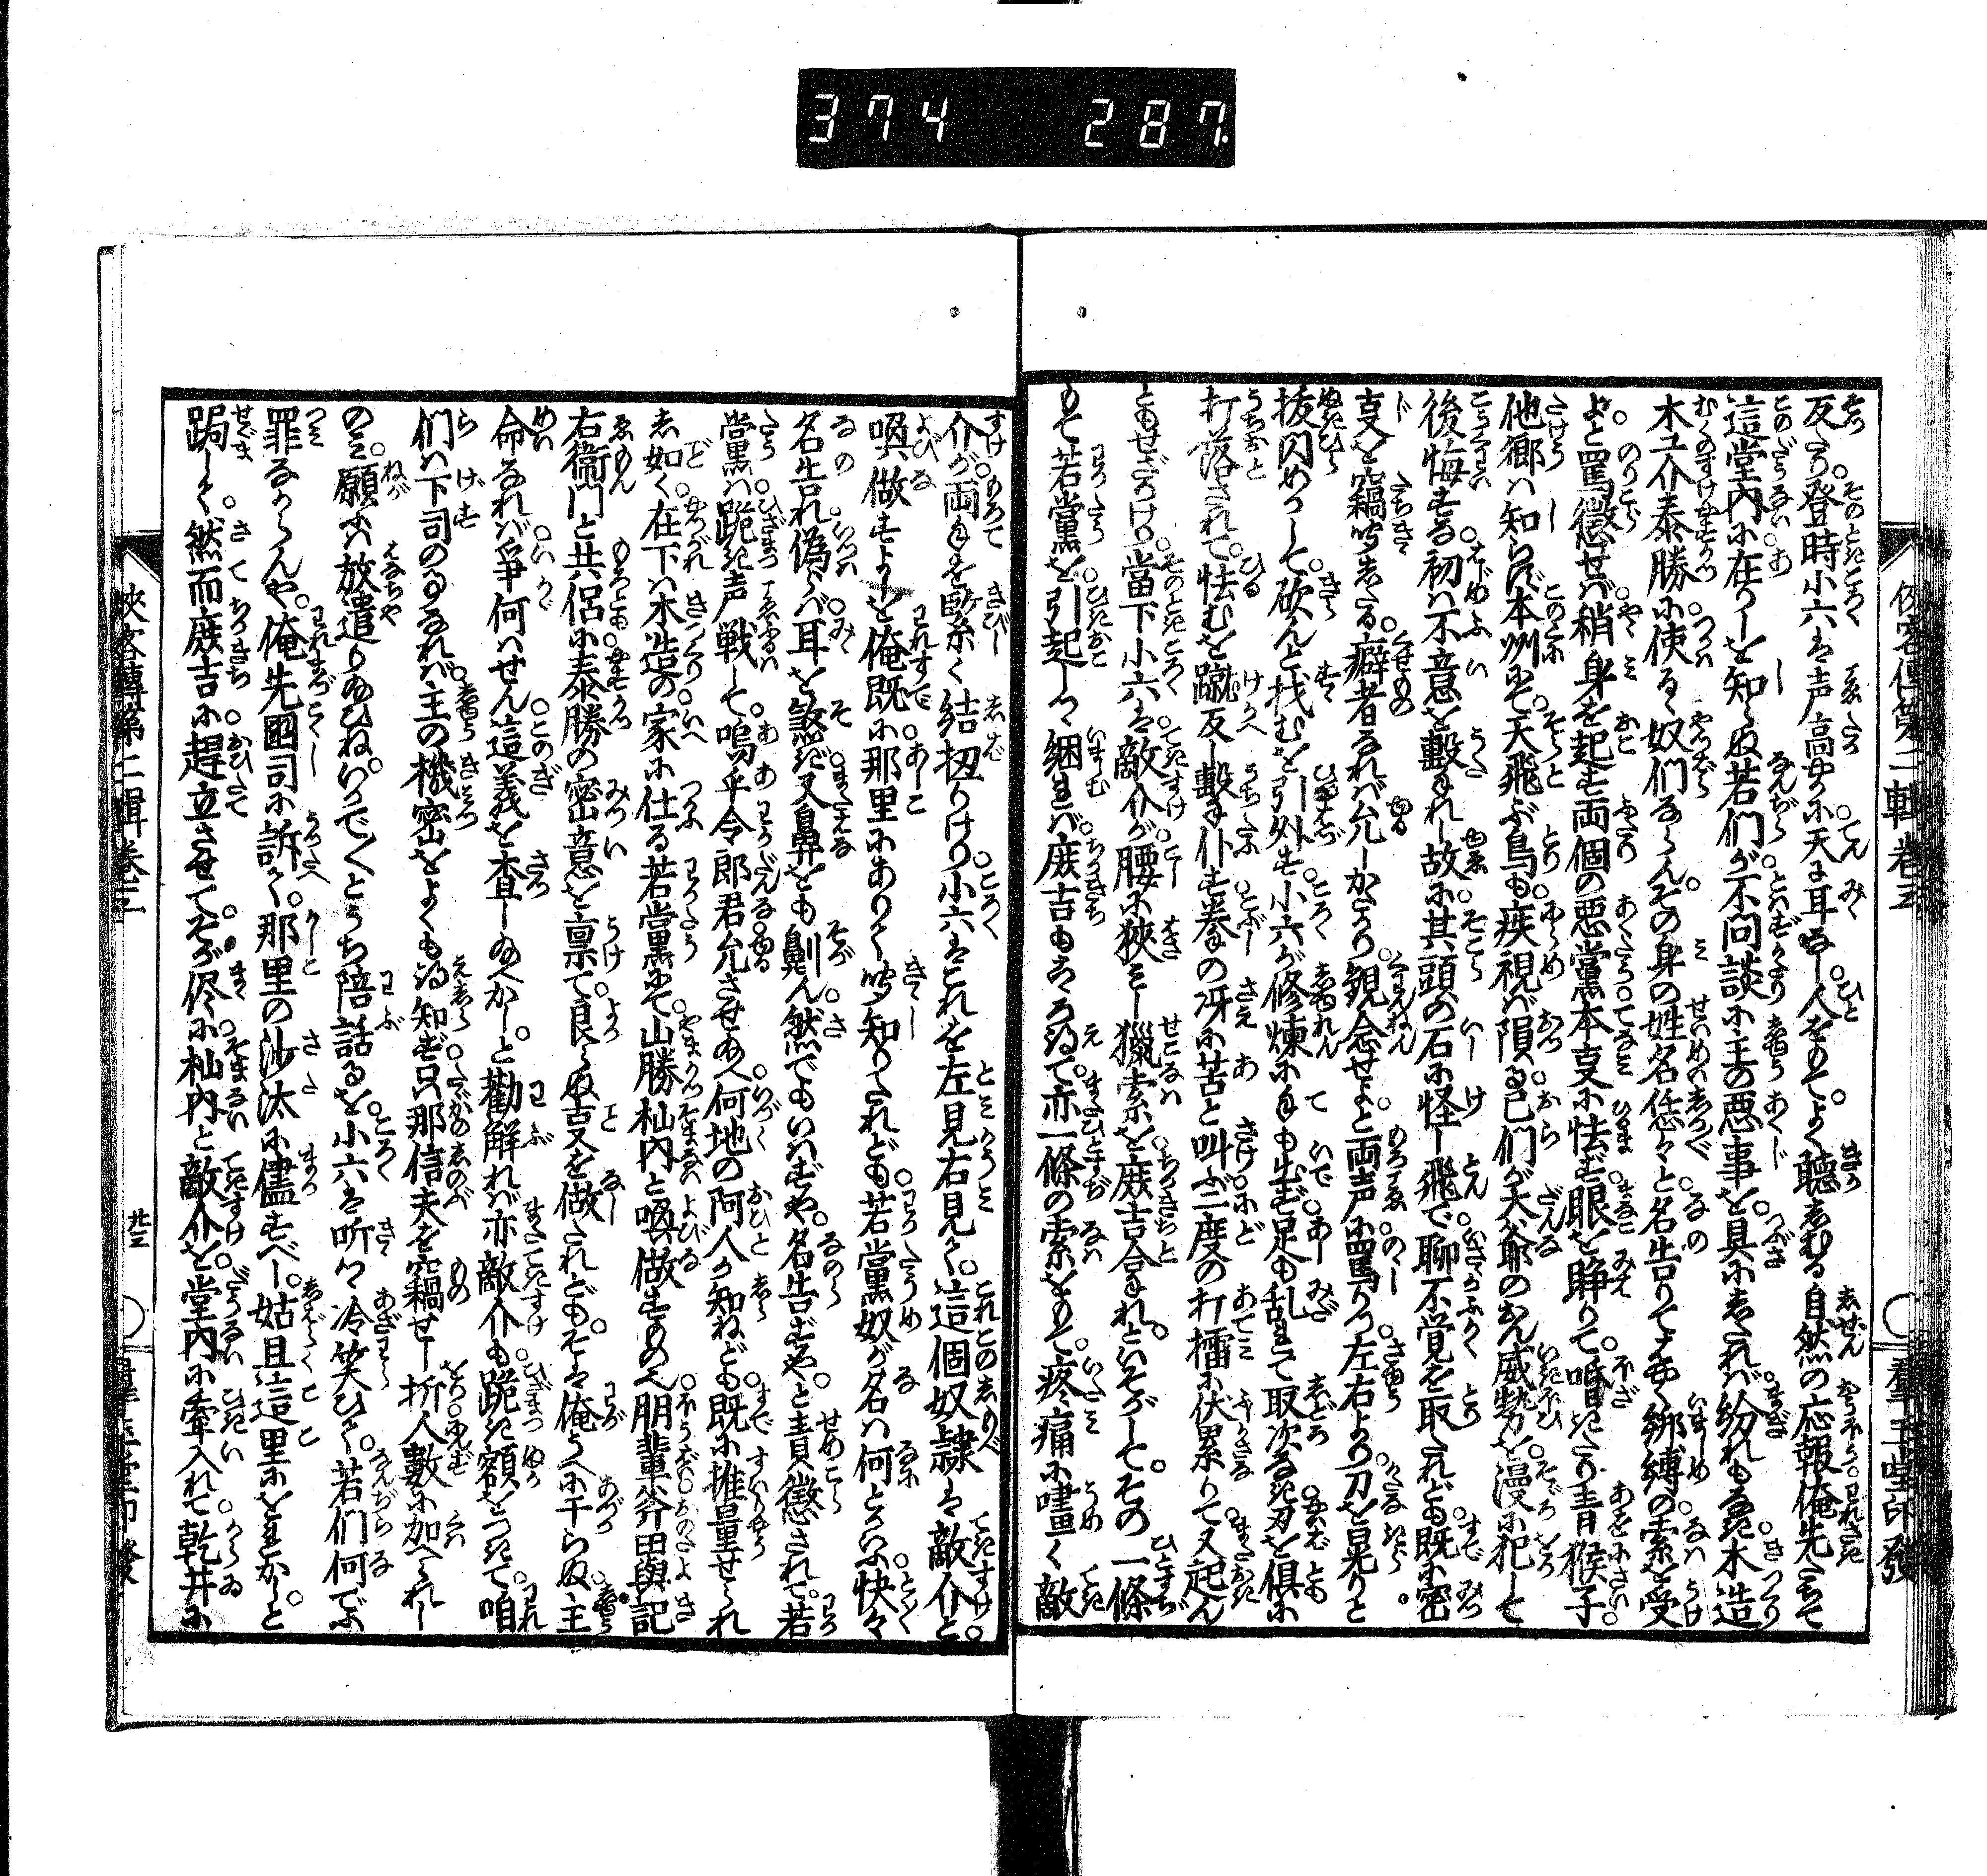 374 287
俠客傳第二輯卷五
群玉堂師發
反たり。登時小六は声高やかに天に耳なし。人をもて。よく聴しむる自然の応報。俺先たちて
這堂内に在りしを知らぬ若們が不問談に主の悪事を。具にしたれば紛れもなき木造
木工介泰勝に使るゝ奴們ならん。その身の姓名恁々と名告りてはやく綁縛の索を受
よ。と罵懲せば稍身を起す両個の悪黨本支に怯ず眼を睁りて。噆たり青猴子。
他鄉は知らず本州にて。天飛ぶ鳥も疾視ば隕る己們が大爺のおん威勢を漫に犯して
後悔する。初は不意を擊れし故に其頭の石に怪し飛で聊不覚を取たれども。既に密
支を竊听したる。癖者なれば允しがたかり。観念せよ。と両声に罵りつ左右より刀を晃りと
抜閃めかして。砍んと找むを引外す小六が修煉に手も出ず足も乱れて取次なき刃を俱に
打落されて。怯むを蹴反し擊仆す拳の冴に苦と叫ぶ二度の打擂に伏累りて又起ん
ともせざりけり。當下小六は敵介が腰に狹みし獵索を。庭吉合手れ。といそがして。その一條
もて若黨を引起しつゝ綑れば。庭吉もはや得て。亦一條の索をもて。疼痛に嘯く敵
介が両手を緊しく結扭りけり。小六はこれを左見右見て。這個奴隷は敵介と。
喚做すよしを俺既に那里にありて听知りたれども。若黨奴が名は何とかいふ快々
名告れ。偽らば耳を煞ぎ又鼻をも劓ん。然でもいはずや。名告ずや。と責懲されて。若
黨は跪き声戦して。嗚乎令郎君允させ給へ。何地の阿人か知ねども。既に推量せられ
し如く。在下は木造の家に仕る若黨にて。山勝杣内と喚做すもの也。朋輩斧田與記
右衞門と共侶に泰勝の密意を禀て。良らぬ支を做したれども。そは俺うへに干らぬ。主
命なれば争何はせん。這義を查し給へかし。と勸解れば亦敵介も跪き額をつきて。咱
们は下司の事なれば。主の機密をよくも得知ず。只那信夫を竊せし折。人數に加へられし
のみ。願ふは放遣り給ひね。いかで〱とうち陪話るを。小六は听つゝ冷笑ひて。若们何でふ
罪なからんや。俺先國司に訴へて。那里の沙汰に儘すべし。姑且這里にをれかし。と
跼しく。然而庭吉に趕立させて。そが侭に杣内と敵介を。堂内に牽入れて乾井に
俠客傳第二輯卷五
廿三
群玉堂師發